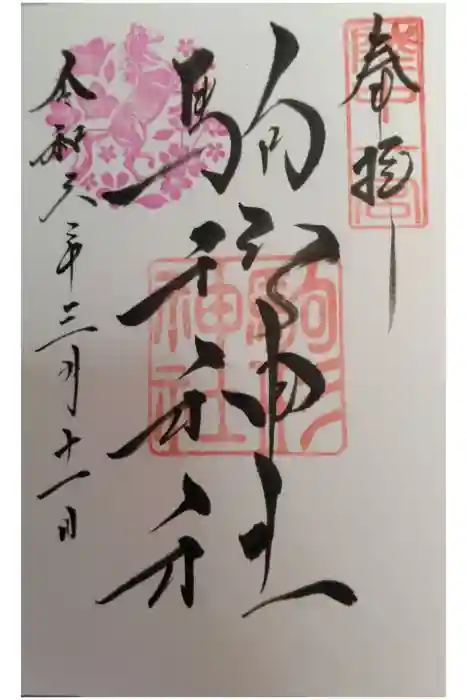 奉拝
駒形神社
令和六年三月十一日
駒形神社